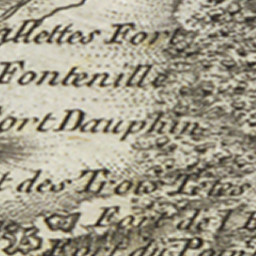 allettes Fort
Fontenille
ort Dauphin
t des Trois Tetes
Fort de l
Fort du